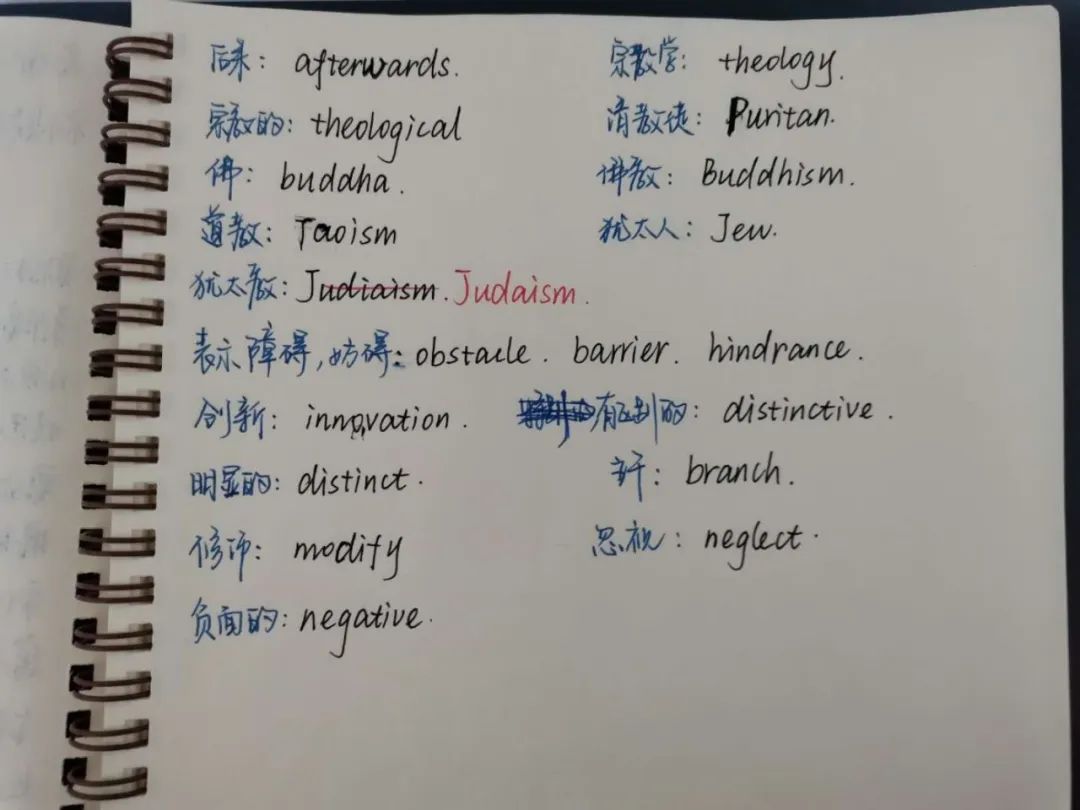 后来: afterwards. 宗教学: theology.
宗教的: theological 清教徒: Puritan.
佛: buddha. 佛教: Buddhism.
道教: Taoism 犹太人: Jew.
犹太教: Judiaism. Judaism.
表示障碍,妨碍: obstacle. barrier. hindrance.
创新: innovation. 有区别的: distinctive.
明显的: distinct. branch.
修饰: modify 忽视: neglect.
负面的: negative.